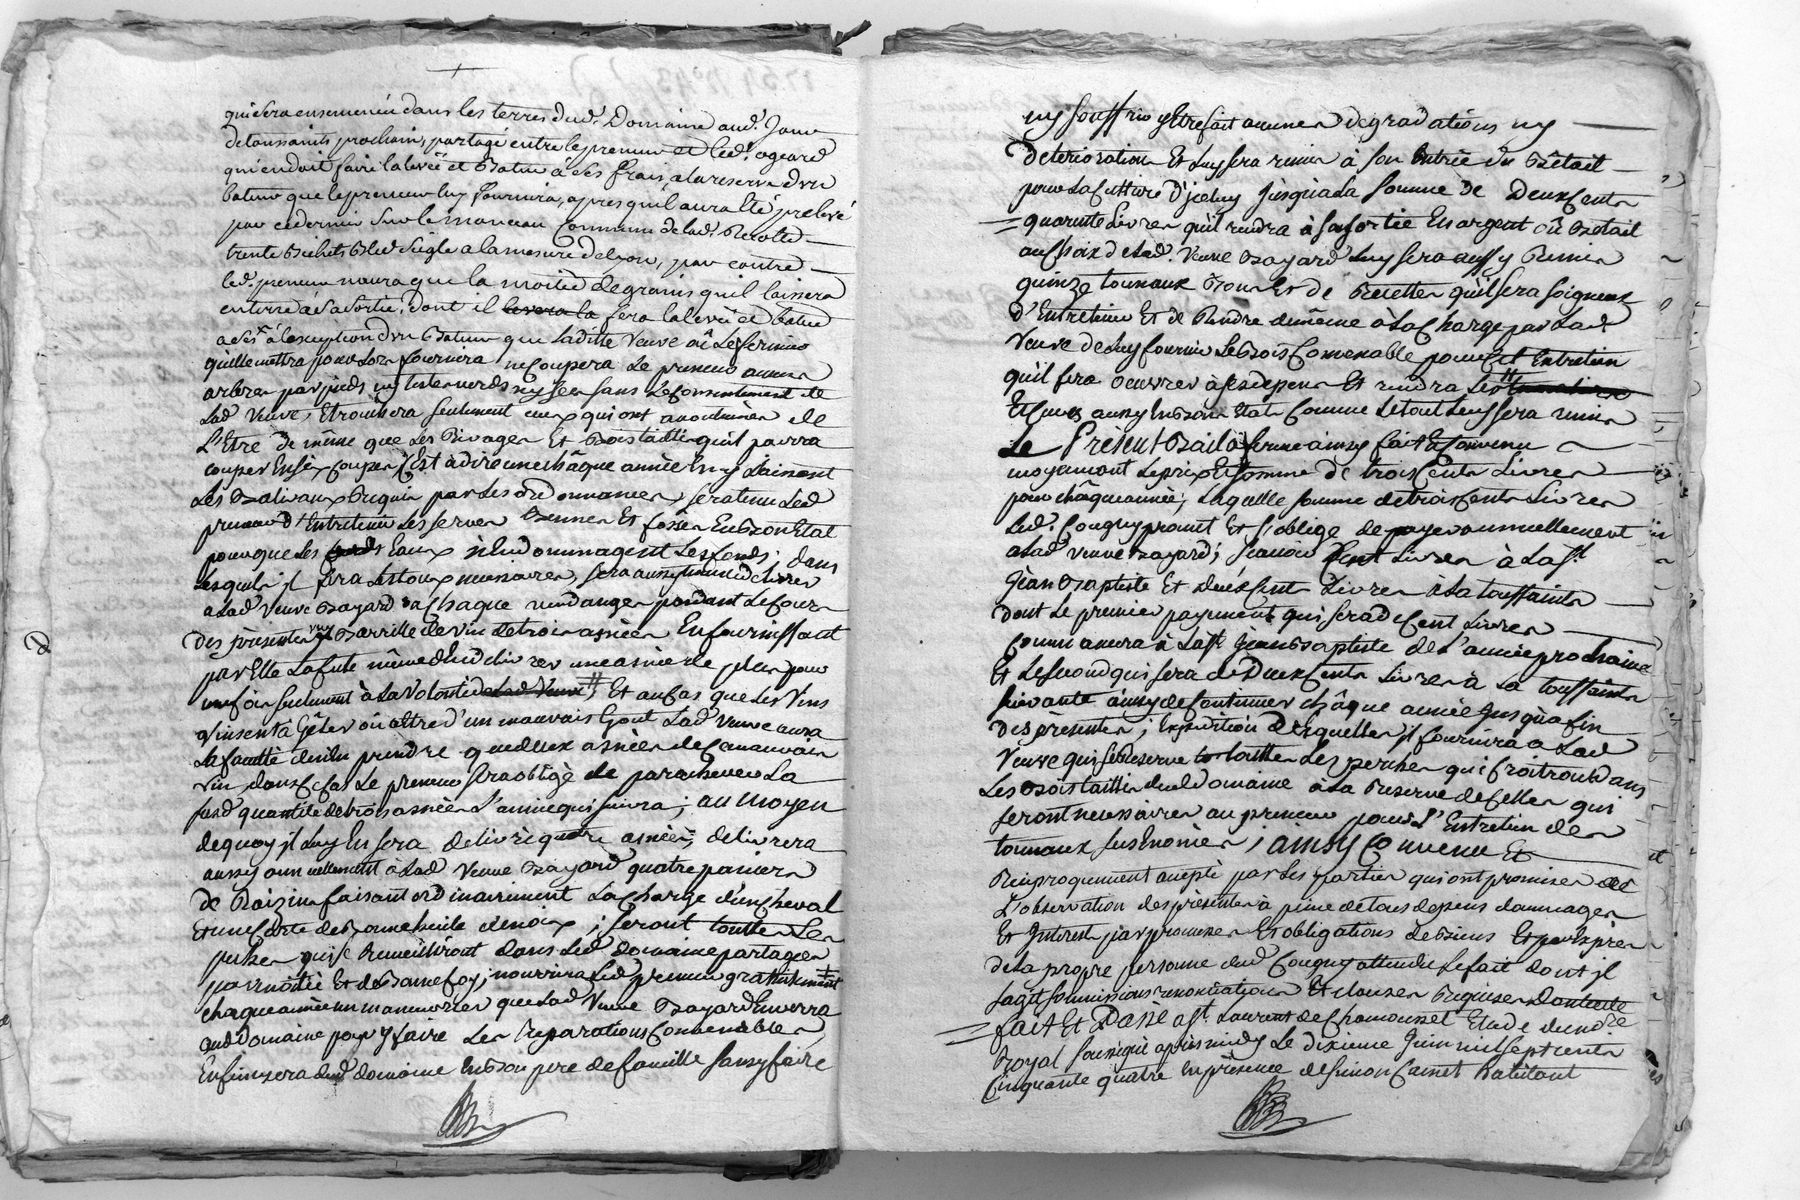 qui sera ensemencée dans les terres dud. Domaine aud. Jour
de toussaints prochain, partagé entre le preneur et led. ogeard
qui en doit faire la levée et Batue à ses frais, a la reserve d'un
bateur que le preneur luy fournira, apres qu'il aura Eté prelevé
par ce dernier sur le monceau Commun de lad. Recolte
trente Bichets Bled seigle a la mesure de lyon, par contre
led. preneur n'aura que la moitié des grains qu'il laissera
en terre à sa sortie, dont il levera la fera la levée et batue
a ses à l'exception d'un Bateur que laditte Veuve où le fermier
qu'elle mettra pour lors fournira ne coupera le preneur aucun
arbres par pieds ny testes verds ny secs sans le consentement de
lad Veuve, Et rompera seulement ceux qui ont accoutumés de
L'Etre de même que les Rivages Et Bois taillis qu'il pourra
couper En six Coupes C'Est à dire une châque année En y laissant
Les Balivaux Requis par les ordonnances, sera tenu led
preneur d'Entretenir les serves Bennes Et fossés En Bon Etat
pour que les Eaux n'Endommagent les fonds; dans
lesquels jl fera les toux necessaires, sera aussy tenu de livrer
a lad Veuve Bayard a Chaque vendanges pendant le Cour
des présentes une Barrille de vin de trois asnées En fournissant
par Elle la futte même d'En livrer une asnée de plus pour
une fois seulement à la Volonté de lad Veuve; Et au Cas que les Vins
vinsent à Gâter où attre d'un mauvais Gout lad Veuve aura
la faculté d'en prendre que deux asnées de Ce mauvais
vin, dans ce Cas le preneur sera obligé de parachever La
susd quantité de trois asnées l'année qui suivra; au moyen
de quoy jl luy En sera delivré quatre asnées, delivrera
aussy annuellement à lad Veuve Bayard quatre paniers
de Raizins faisant ordinairement la Charge d'un Cheval
Et une Carte de Bonne huile de noix; seront touttes Les
qui se Recueilliront dans led domaine partagées
par moitié Et de Bonne foy; nourrira led preneur gratuitement
chaque année un manuvrier que lad Veuve Bayard Enverra
aud Domaine pour y faire Les Reparations Convenables
Enfin usera dud domaine En Bon pere de famille sans y faire
ny souffrir y Etre fait aucunes degradations ny
deterioration Et luy sera remis à son Entrée du Bétail
pour la Culture d'jceluy jusqu'a la somme de Deux Cents
quarante Livres qu'il rendra à sa sortie En argent où Betail
au Choix de lad. Veuve Bayard luy sera aussy Remis
quinze tonnaux Bons Et de Recette qu'il sera soigneux
d'Entretenir Et de Rendre de même à la Charge par lad
Veuve de luy fournir Le Bois Convenable pour cet Entretien
qu'il fera oeuvrer à ses depens Et rendra les
Et cuves aussy En Bon Etat Comme le tout luy sera remis
Le Présent Bail à ferme ainsy fait Et Convenu
moyennant le prix Et somme de trois Cents Livres
pour châque année; laquelle somme de trois Cents Livres
led. Cougny promet Et s'oblige de payer annuellement
a lad Veuve Bayard; sçavoir Cent Livres à la St
Jean Baptiste Et deux Cents Livres a la toussaints
Dont le premier payement qui sera de Cent Livres
Commencera à la St Jean Baptiste de l'année prochaine
Et le second qui sera de Deux Cents Livres à la toussaints
suivante ainsy de Continuer châque année jusqu'a fin
Des présentes; Expedition desquelles jl fournira a lad
Veuve qui se Reserve touttes Les perches qui Croitront dans
Les Bois taillis dud domaine à la Reserve de Celles qui
seront necessaires au preneur pour L'Entretien des
tonnaux susEnoncés; ainsy Convenu Et
Reciproquement accepté par Les parties qui ont promises
L'observation des présentes à peine de tous depens dommages
Et Interets par promesses Et obligations de Biens Et par Expres
de la propre personne dud Cougny attendu le fait dont jl
sagit soumissions renonciations Et clauses Requises dont acte
fait Et Passé a St Laurent de Chamousset Etude du no.re
Royal soussigné apres midy Le dixieme Juin mil sept cents
Cinquante quatre En presence de simon Carret habitant